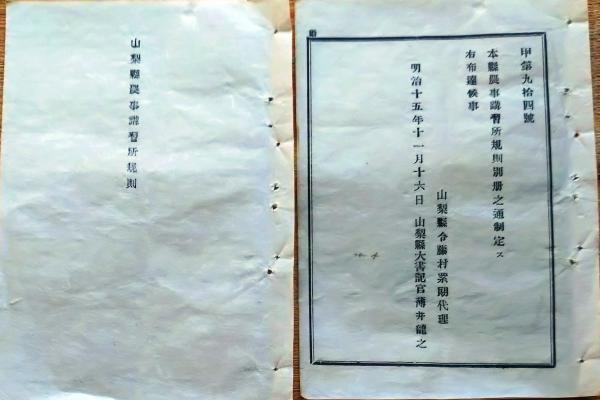 甲第九拾四號
本縣農事講習所規則別册之通制定ス
右布達候事
明治十五年十一月十六日
山梨縣令藤村紫朗代理
山梨縣大書記官薄井龍之
山梨縣農事講習所規則